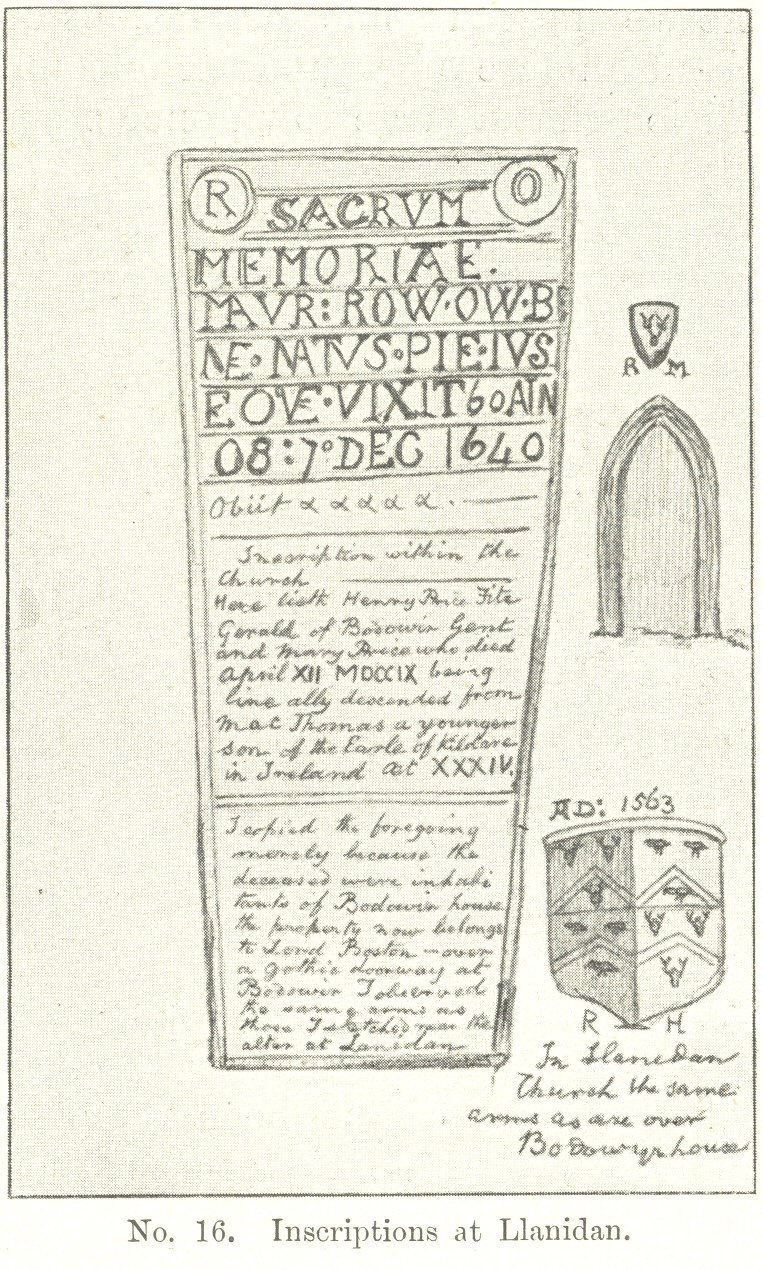 R O
SACRVM
MEMORIAE.
MAVR: ROW·OW·B
NE·NATVS·PIE·IVS
EOVE·VIXIT 60 AIN
08:7° DEC 1640
Obiit α α α α α.
Inscription within the
Church
Here lieth Henry Price Fitz
Gerald of Bodowir Gent
and Mary Price who died
April XII MDCCIX being
line ally descended from
Mac Thomas a younger
son of the Earle of Kildare
in Ireland Æt XXXIV.
I copied the foregoing
merely because the
deceased were inhabi
tants of Bodowir house
the property now belongs
to Lord Boston – over
a gothic doorway at
Bodowir I observed
the same arms as
those I sketched near the
alter at Lanidan
R M
AD: 1563
R H
In Llanidan
Church the same
arms as are over
Bodowyr house
No. 16. Inscriptions at Llanidan.